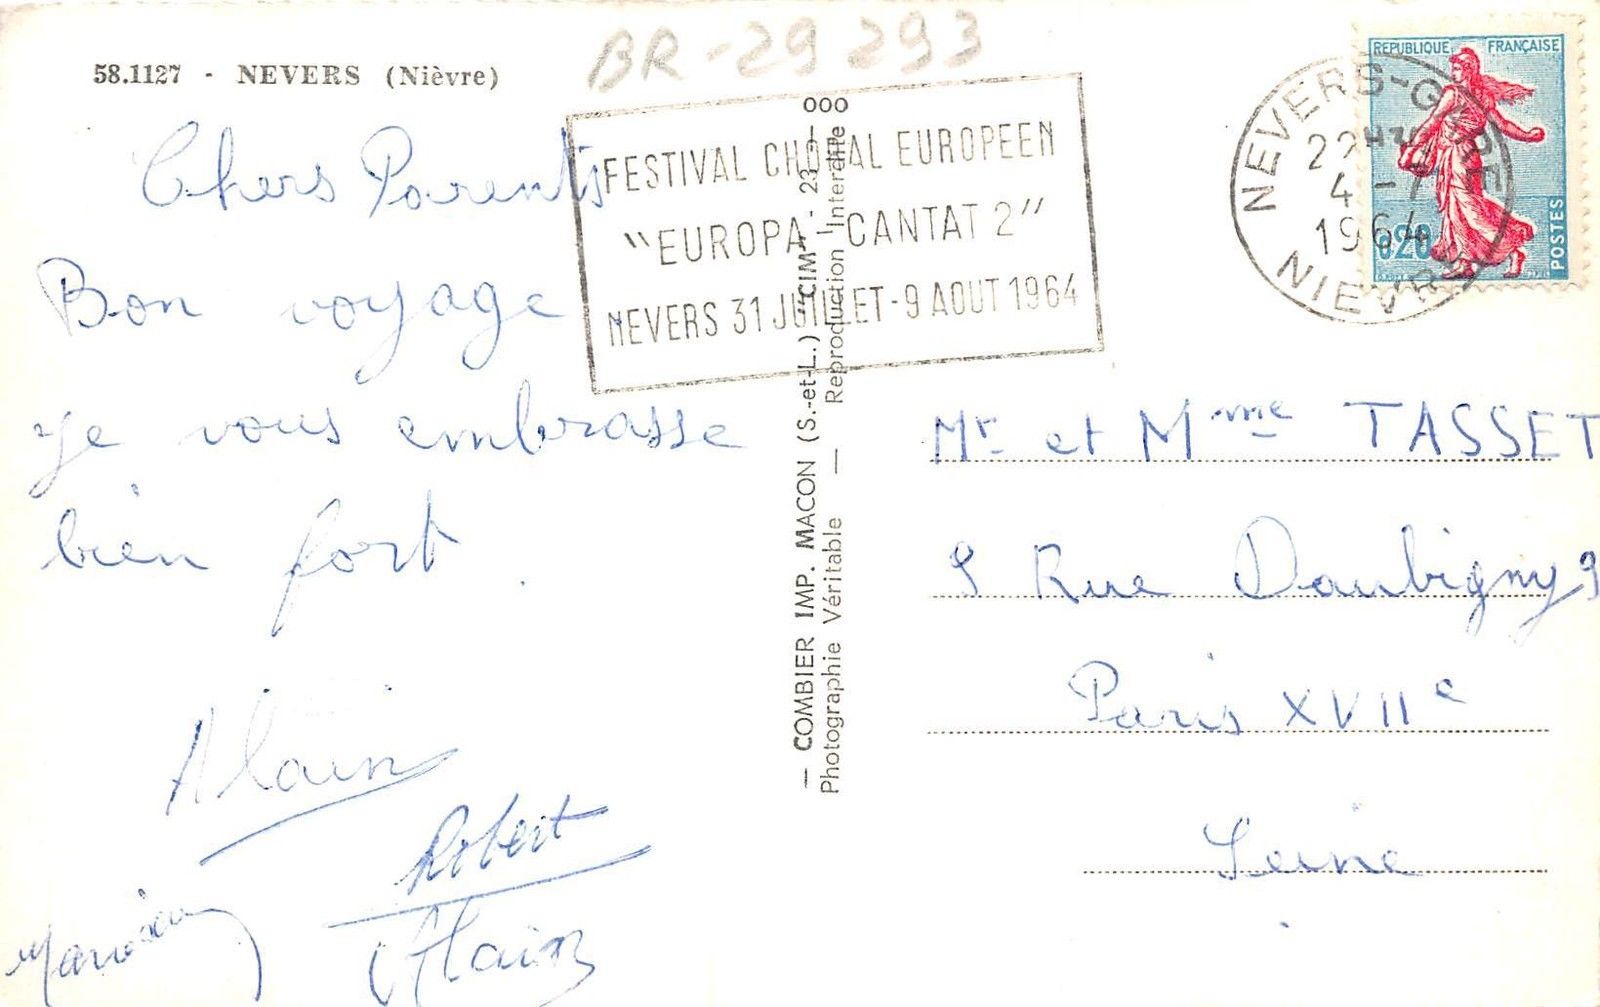 BR-29 293
58.1127 - NEVERS (Nièvre)
Chers Parents
Bon voyage
je vous embrasse
bien fort.
Alain
Robert
Alain
FESTIVAL CHORAL EUROPEEN
"EUROPA - CANTAT 2"
NEVERS 31 JUILLET - 9 AOUT 1964
— COMBIER IMP. MACON (S.-et-L.) "CIM" - 23 — 000
Photographie Véritable — Reproduction Interdite
NEVERS-GARE
22H
4 -
1964
NIEVRE
REPUBLIQUE FRANÇAISE
0,20
POSTES
Mr et Mme TASSET
9 Rue Daubigny 9
Paris XVIIe
Seine